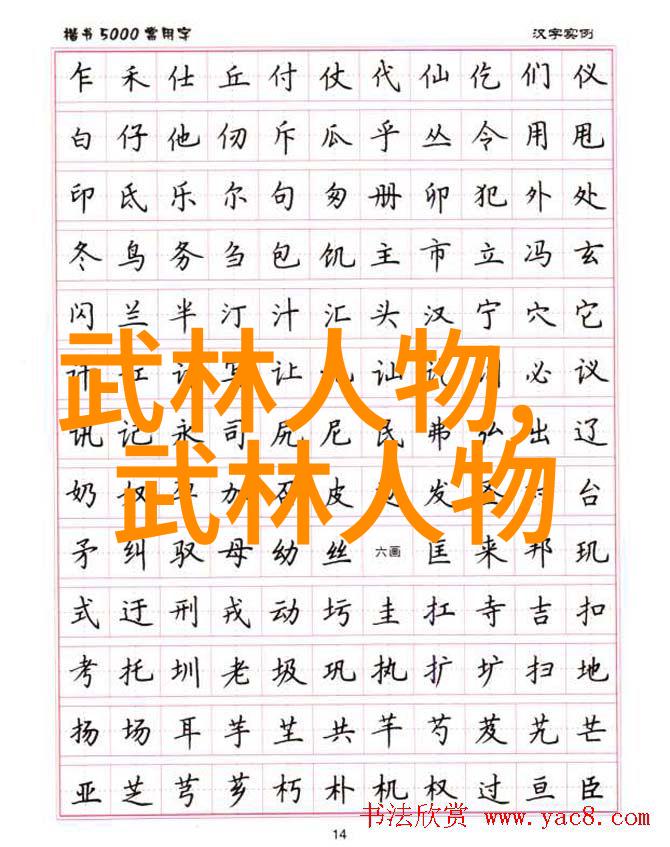 楷书5000常用字 汉字实例
乍禾仕丘付仗代仙仡们仪
白仔他仞斥瓜乎丛令用甩
印氐乐尔句匆册卯犯外处
冬鸟务刍包饥主市立冯玄
闪兰半汀汁汇头汉宁穴它
让讪必议
武林人物,
讯记永司尻尼民弗弘出辽
武林人物
奶加皮发台
矛纠驭母幼丝六画匡来邦玑
式迂刑戎动圬圭扛寺吉扣
考托圳老圾巩执扩圹扫地
扬场耳芋芏共芊芍芨艽芒
亚芝芎芗朽朴机权过亘臣
书法欣赏 www.yac8.com
14